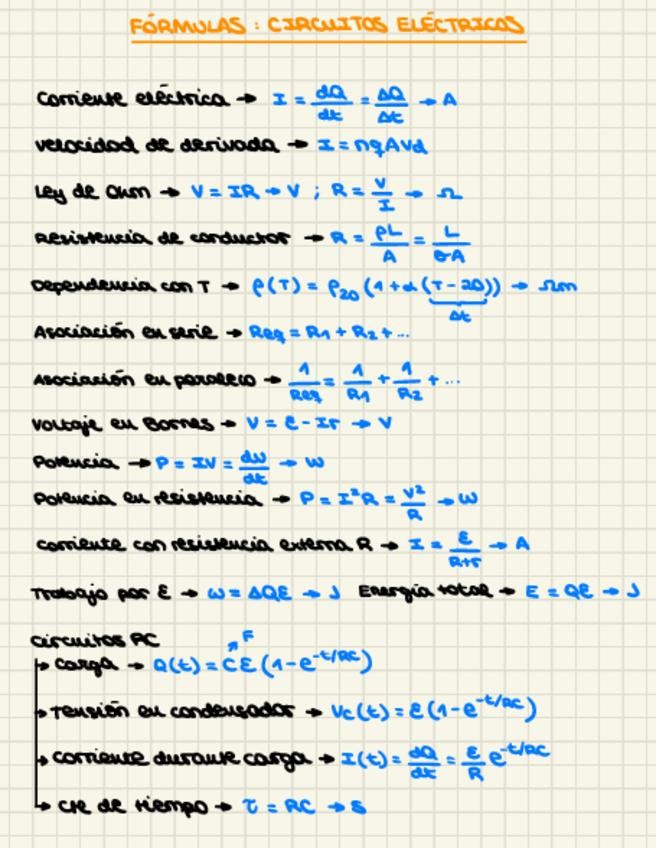 FÓRMULAS : CIRCUITOS ELÉCTRICOS
Corriente eléctrica → I = dQ/dt = ΔQ/Δt → A
velocidad de derivada → I = nqAVd
Ley de Ohm → V = IR → V ; R = V/I → Ω
Resistencia de conductor → R = ρL/A = L/σA
Dependencia con T → ρ(T) = ρ20 (1 + α (T - 20)) → Ωm
Δt
Asociación en serie → Req = R1 + R2 + ...
Asociación en paralelo → 1/Req = 1/R1 + 1/R2 + ...
Voltaje en Bornes → V = ε - Ir → V
Potencia → P = IV = dW/dt → W
Potencia en resistencia → P = I²R = V²/R → W
corriente con resistencia externa R → I = ε/R+r → A
Trabajo por ε → W = ΔQε → J Energía total → E = Qε → J
Circuitos RC
F
carga → Q(t) = Cε (1 - e^-t/RC)
Tensión en condensador → Vc(t) = ε (1 - e^-t/RC)
corriente durante carga → I(t) = dQ/dt = ε/R e^-t/RC
cte de tiempo → τ = RC → s